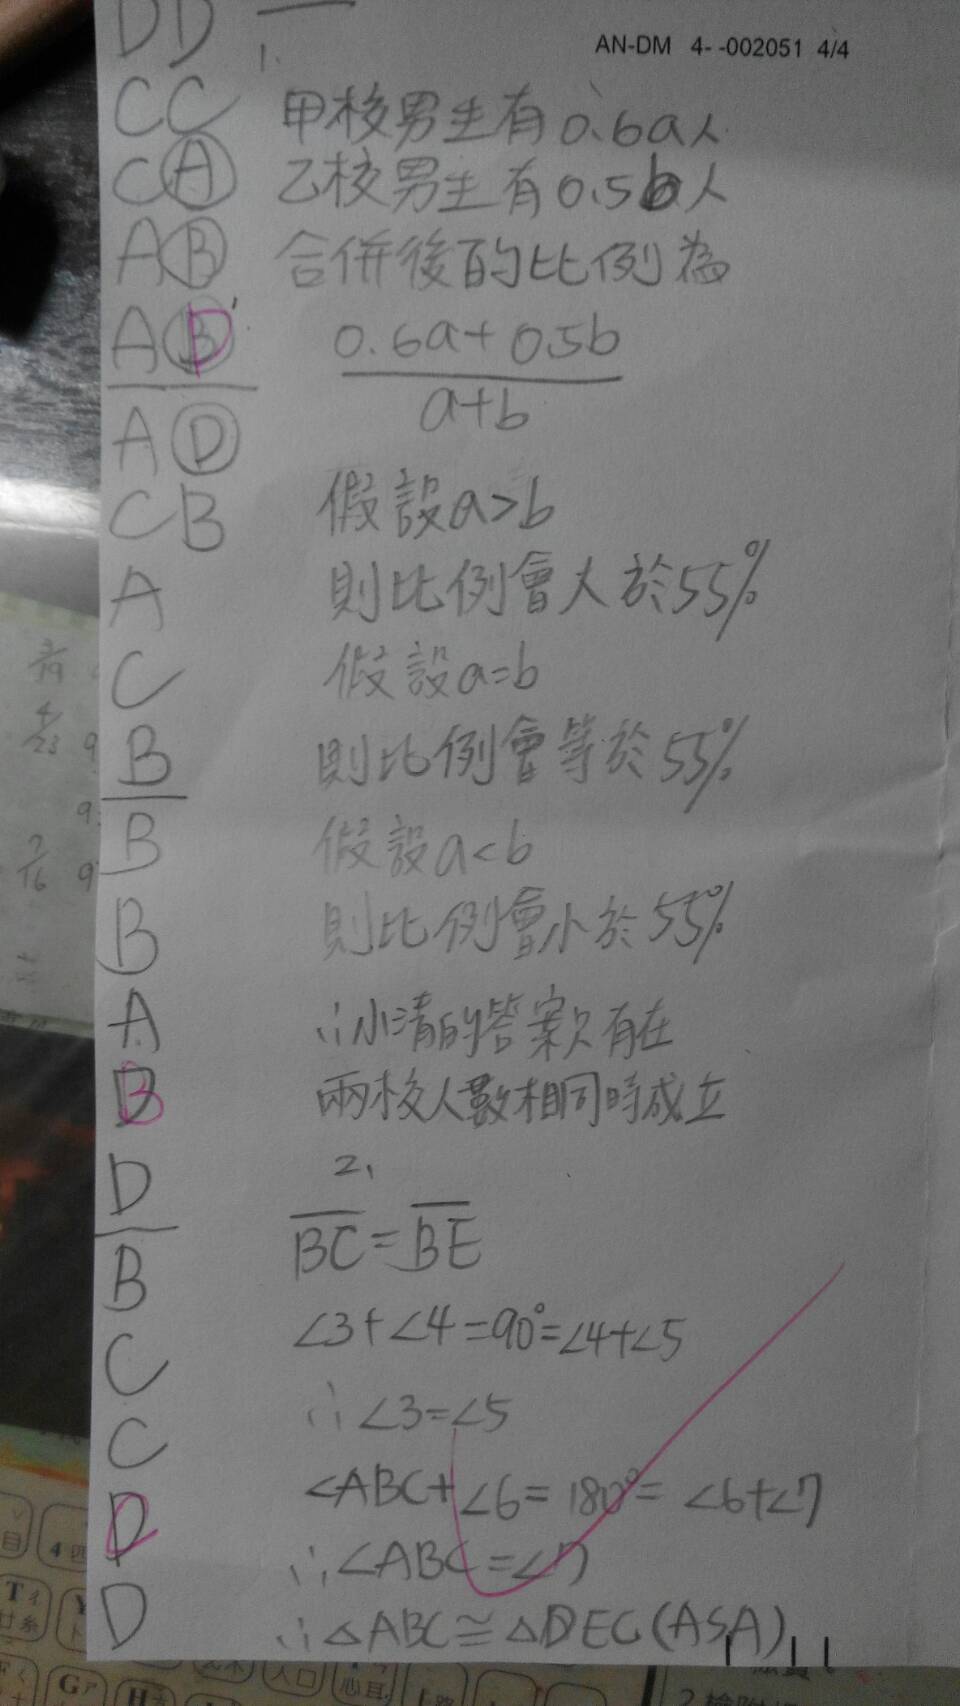 AN-DM 4- -002051 4/4
DD
CC
CA
AB
A
AD
CB
A
C
B
B
B
A
B
D
B
C
C
D
D
1.
甲校男生有0.6a人
乙校男生有0.5b人
合併後的比例為
0.6a+0.5b
a+b
假設a>b
則比例會大於55%
假設a=b
則比例會等於55%
假設a<b
則比例會小於55%
∴小清的答案只有在
兩校人數相同時成立
2.
BC=BE
∠3+∠4=90°=∠4+∠5
∴∠3=∠5
∠ABC+∠6=180°=∠6+∠7
∴∠ABC=∠7
∴△ABC≅△DEC(ASA)